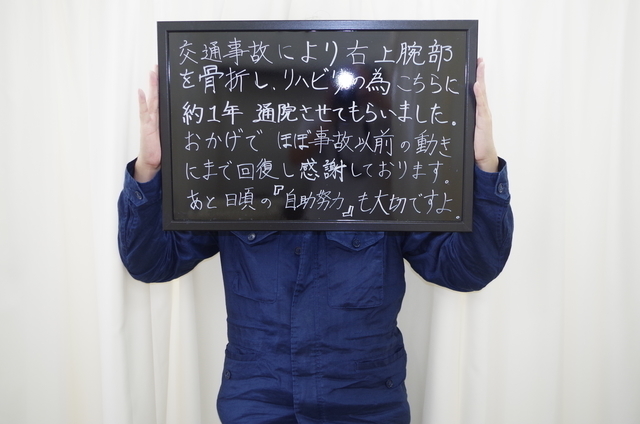 交通事故により右上腕部
を骨折し、リハビリの為こちらに
約1年 通院させてもらいました。
おかげで ほぼ事故以前の動き
にまで回復し感謝しております。
あと日頃の『自助努力』も大切ですよ。